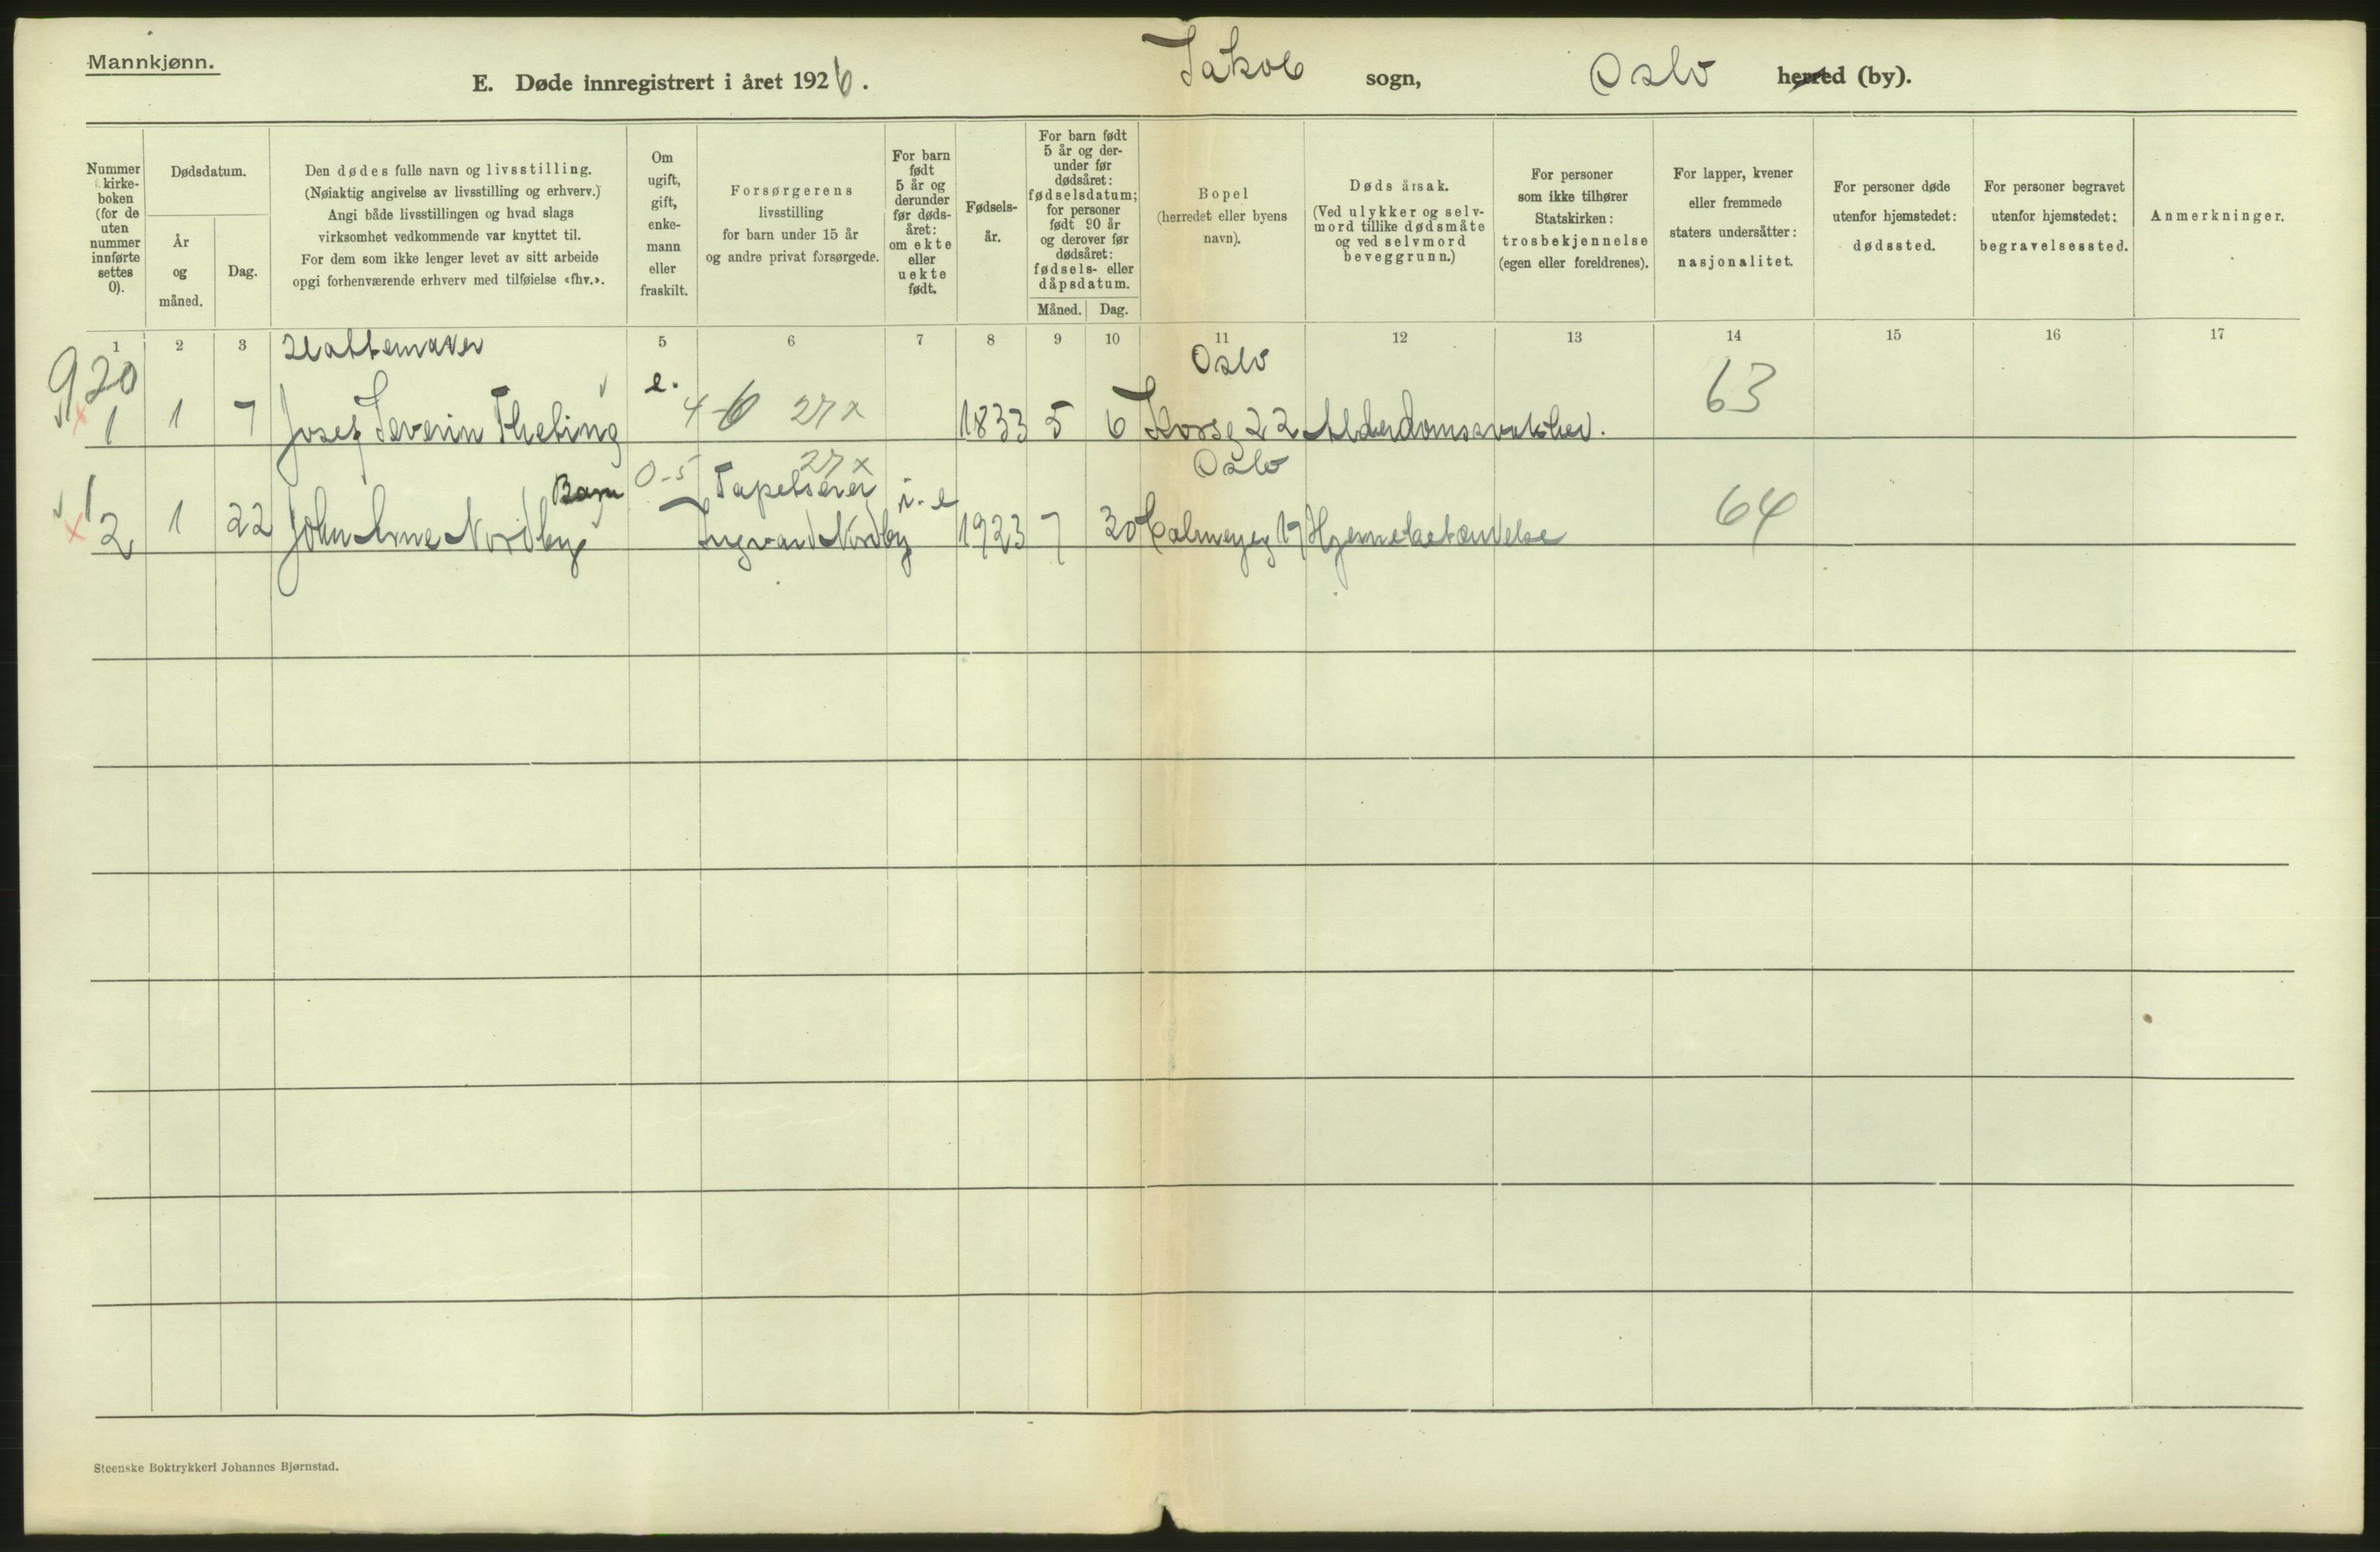 Mannkjønn.
E. Døde innregistrert i året 1926. Jakob sogn, Oslo herred (by).
Nummer i kirkeboken (for de uten nummer innførte settes 0).
Dødsdatum.
År og måned.
Dag.
Den dødes fulle navn og livsstilling.
(Nøiaktig angivelse av livsstilling og erhverv.)
Angi både livsstillingen og hvad slags
virksomhet vedkommende var knyttet til.
For dem som ikke lenger levet av sitt arbeide
opgi forhenværende erhverv med tilføielse «fhv.».
Om ugift, gift, enkemann eller fraskilt.
Forsørgerens
livsstilling
for barn under 15 år
og andre privat forsørgede.
For barn født 5 år og derunder før dødsåret: om ekte eller uekte født.
Fødselsår.
For barn født 5 år og derunder før dødsåret: fødselsdatum; for personer født 90 år og derover før dødsåret: fødsels- eller dåpsdatum.
Måned. Dag.
Bopel
(herredet eller byens
navn).
Døds årsak.
(Ved ulykker og selvmord tillike dødsmåte og ved selvmord beveggrunn.)
For personer
som ikke tilhører
Statskirken:
trosbekjennelse
(egen eller foreldrenes).
For lapper, kvener
eller fremmede
staters undersåtter:
nasjonalitet.
For personer døde
utenfor hjemstedet:
dødssted.
For personer begravet
utenfor hjemstedet:
begravelsessted.
Anmerkninger.
1 2 3 5 6 7 8 9 10 11 12 13 14 15 16 17
920 Hattemaker e. Oslo
1 1 7 Josef Severin Thebing 4-6 27 x 1833 5 6 Korsg 22 Alderdomssvakhed. 63
Barn 0-5 Tapetserer 27 x i. e Oslo
2 1 22 John Arne Nordby Ingvard Nordby 1923 7 30 Calmeyerg 19 Hjernebetændelse 64
Steenske Boktrykkeri Johannes Bjørnstad.